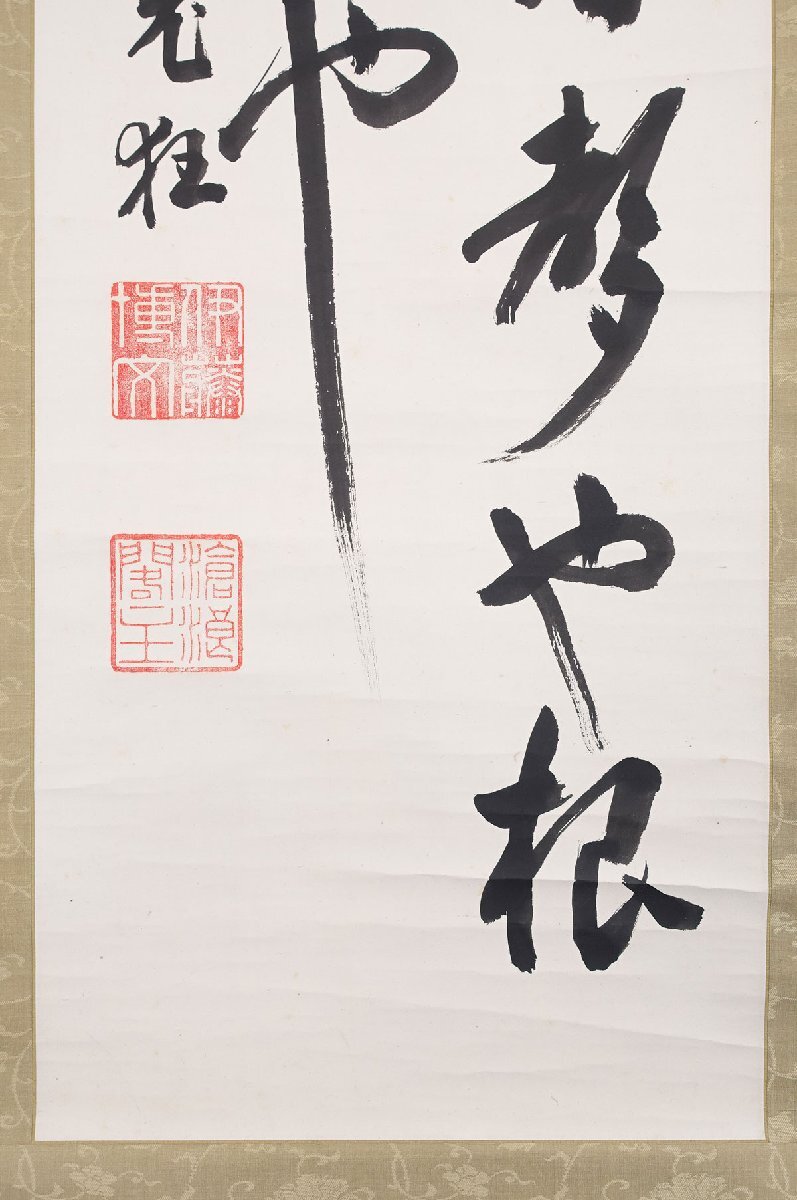 也根
也
老狂
伊藤博文
滄浪閣主